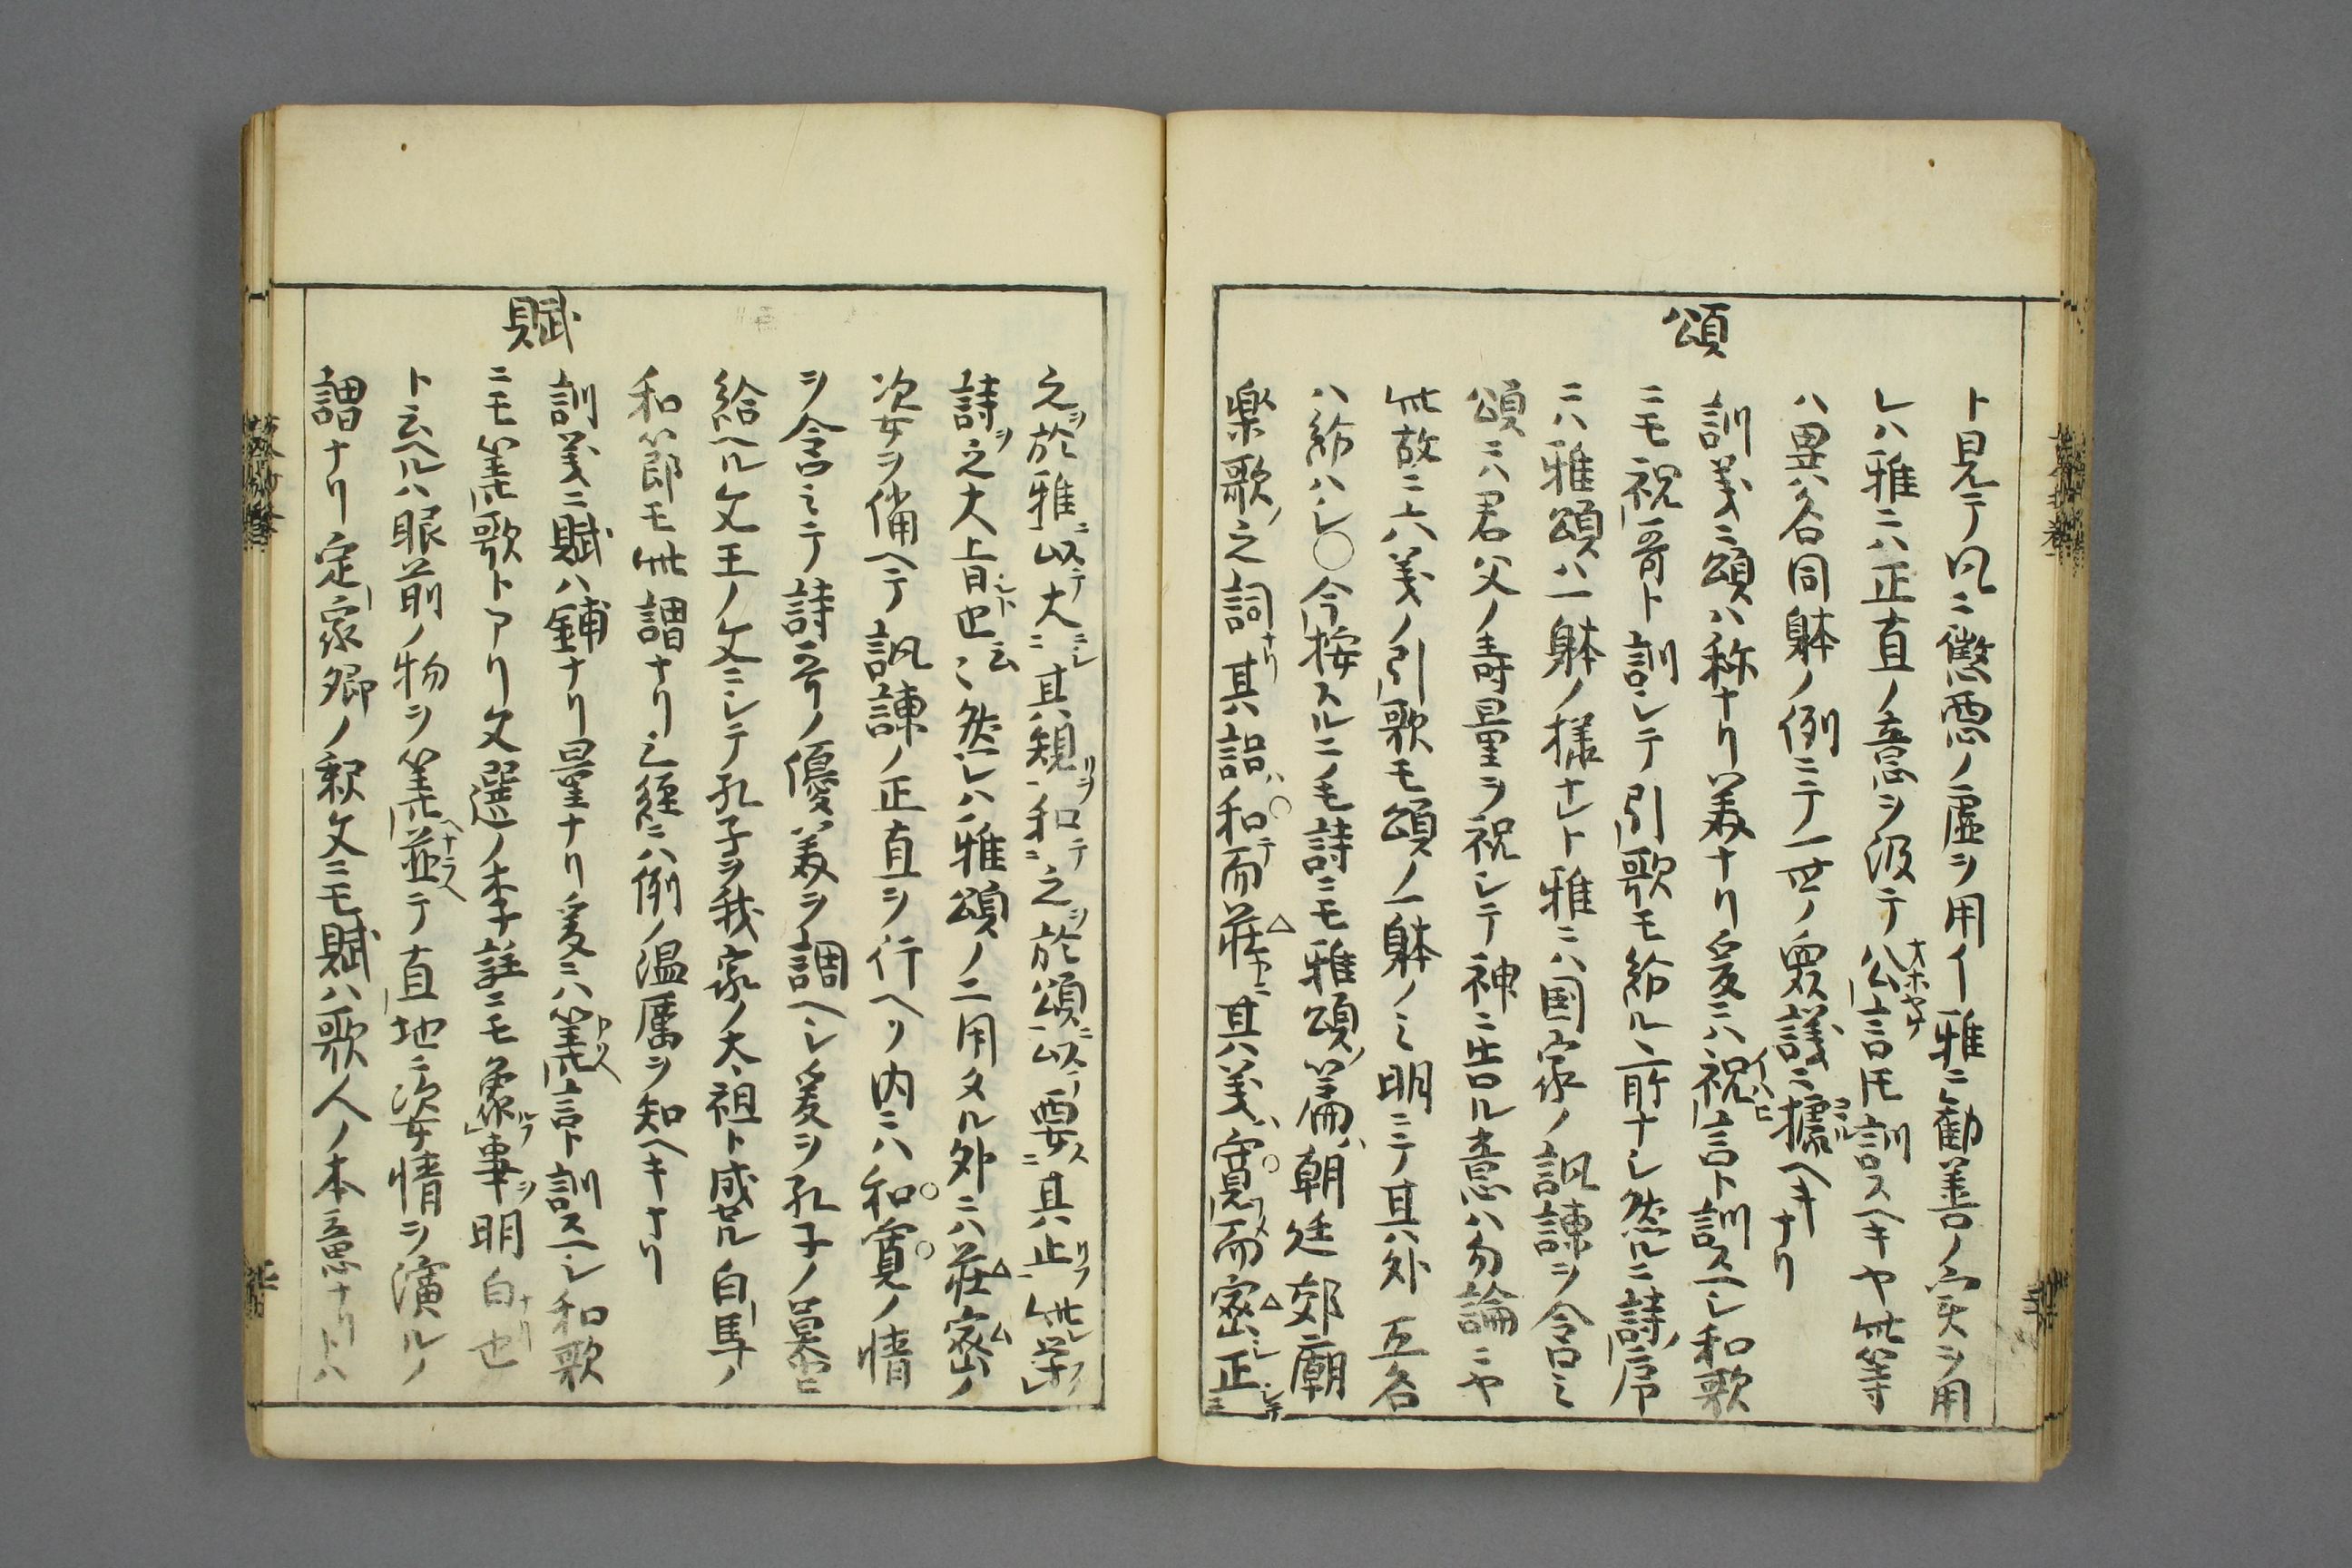 ト見テ凡ニ懲悪ノ虚ヲ用イ雅ニ勧善ノ実ヲ用
レハ雅ニハ正直ノ意ヲ汲テ公言トモ訓スヘキヤ此等
ハ異名同躰ノ例ニテ一世ノ衆議ニ據ヘキナリ
頌
訓義ニ頌ハ称ナリ美ナリ爰ニハ祝言ト訓スヘシ和歌
ニモ祝哥ト訓シテ引歌モ紛ル所ナシ然ルニ詩序
ニハ雅頌ハ一躰ノ様ナレト雅ニハ国家ノ諷諫ヲ含ミ
頌ニハ君父ノ寿量ヲ祝シテ神ニ告ル意ハ勿論ニヤ
此故ニ六義ノ引歌モ頌ノ一躰ノミ明ニテ其外互名
ハ紛ハシ〇今按スルニ毛詩ニモ雅頌ノ篇ハ朝廷郊廟
楽歌ノ之詞ナリ其語ハ和テ而荘ヤカニ其義ハ寛而密シ正
之ヲ於雅ニ以テ大ニシ其規ヲ和テ之ヲ於頌ニ以テ要ス其止ヲ此レ学ノ
詩ヲ之大旨也ト云ニ然レハ雅頌ノ二用タル外ニハ荘密ノ
姿ヲ備ヘテ諷諫ノ正直ヲ行ヘリ内ニハ和寛ノ情
ヲ含ミテ詩哥ノ優美ヲ調ヘシ爰ヲ孔子ノ
給ヘル文王ノ文ニシテ孔子ヲ我家ノ太祖ト成セル白馬ノ
和節モ此謂ナリ之経ニハ例ノ温厲ヲ知ヘキナリ
賦
訓義ニ賦ハ鋪ナリ量ナリ爰ニハ篗言ト訓スヘシ和歌
ニモ歌トアリ文選ノ李註ニモ象事ヲ明白ナリ也
ト云ヘルハ眼前ノ物ヲ並ヘテ直地ニ姿情ヲ演ルノ
謂ナリ定家卿ノ釈文ニモ賦ハ歌人ノ本意ナリトハ